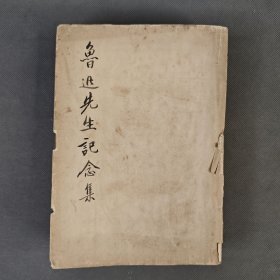 魯迅先生記念集